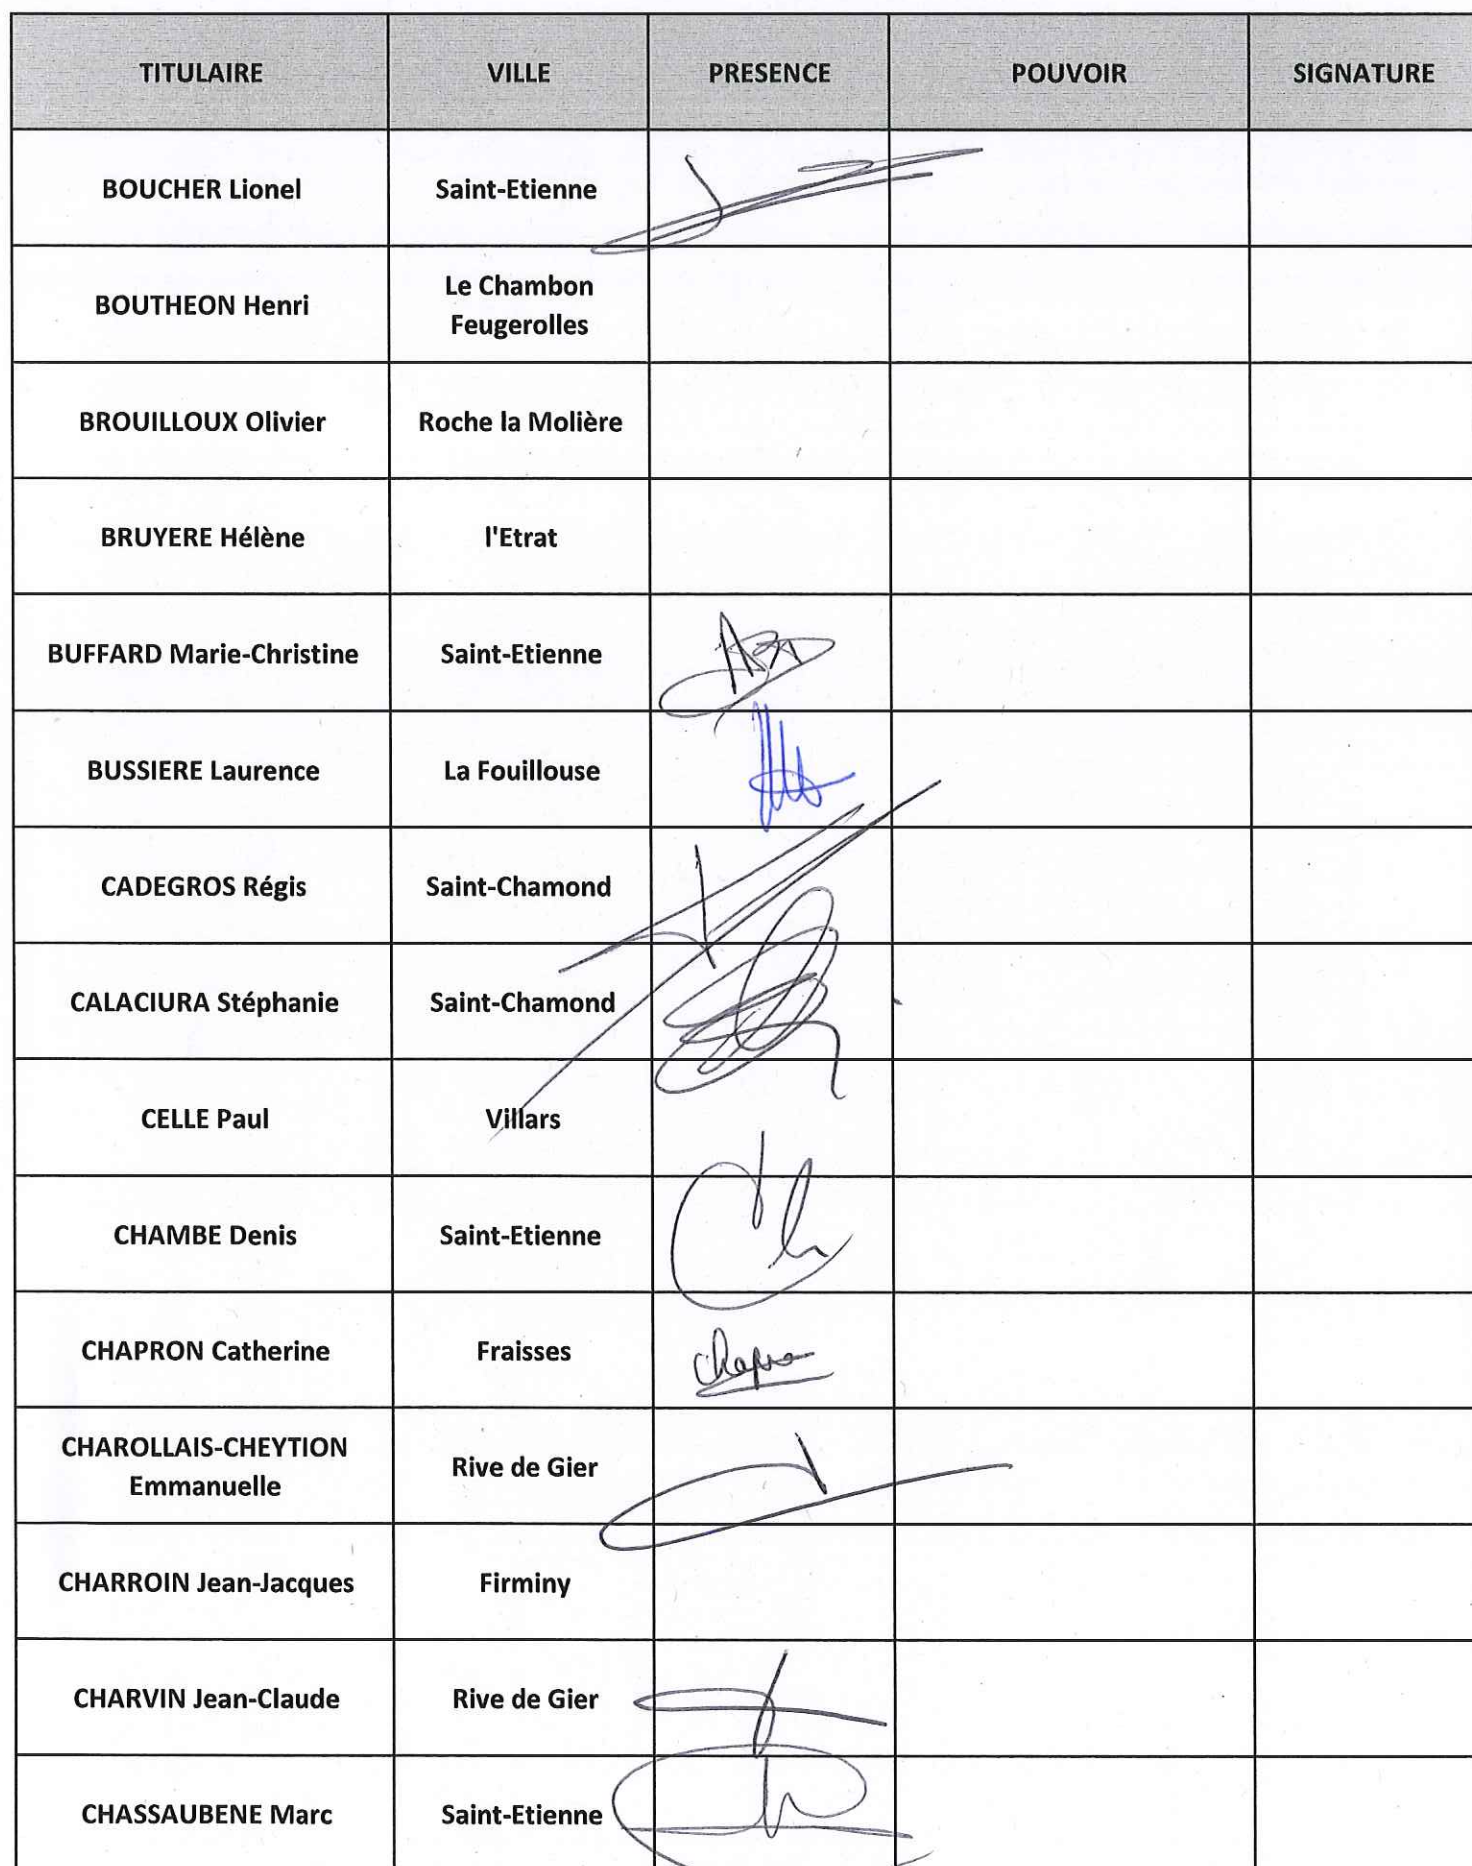 TITULAIRE VILLE PRESENCE POUVOIR SIGNATURE
BOUCHER Lionel Saint-Etienne
BOUTHEON Henri Le Chambon
Feugerolles
BROUILLOUX Olivier Roche la Molière
BRUYERE Hélène l'Etrat
BUFFARD Marie-Christine Saint-Etienne
BUSSIERE Laurence La Fouillouse
CADEGROS Régis Saint-Chamond
CALACIURA Stéphanie Saint-Chamond
CELLE Paul Villars
CHAMBE Denis Saint-Etienne
CHAPRON Catherine Fraisses
CHAROLLAIS-CHEYTION
Emmanuelle Rive de Gier
CHARROIN Jean-Jacques Firminy
CHARVIN Jean-Claude Rive de Gier
CHASSAUBENE Marc Saint-Etienne